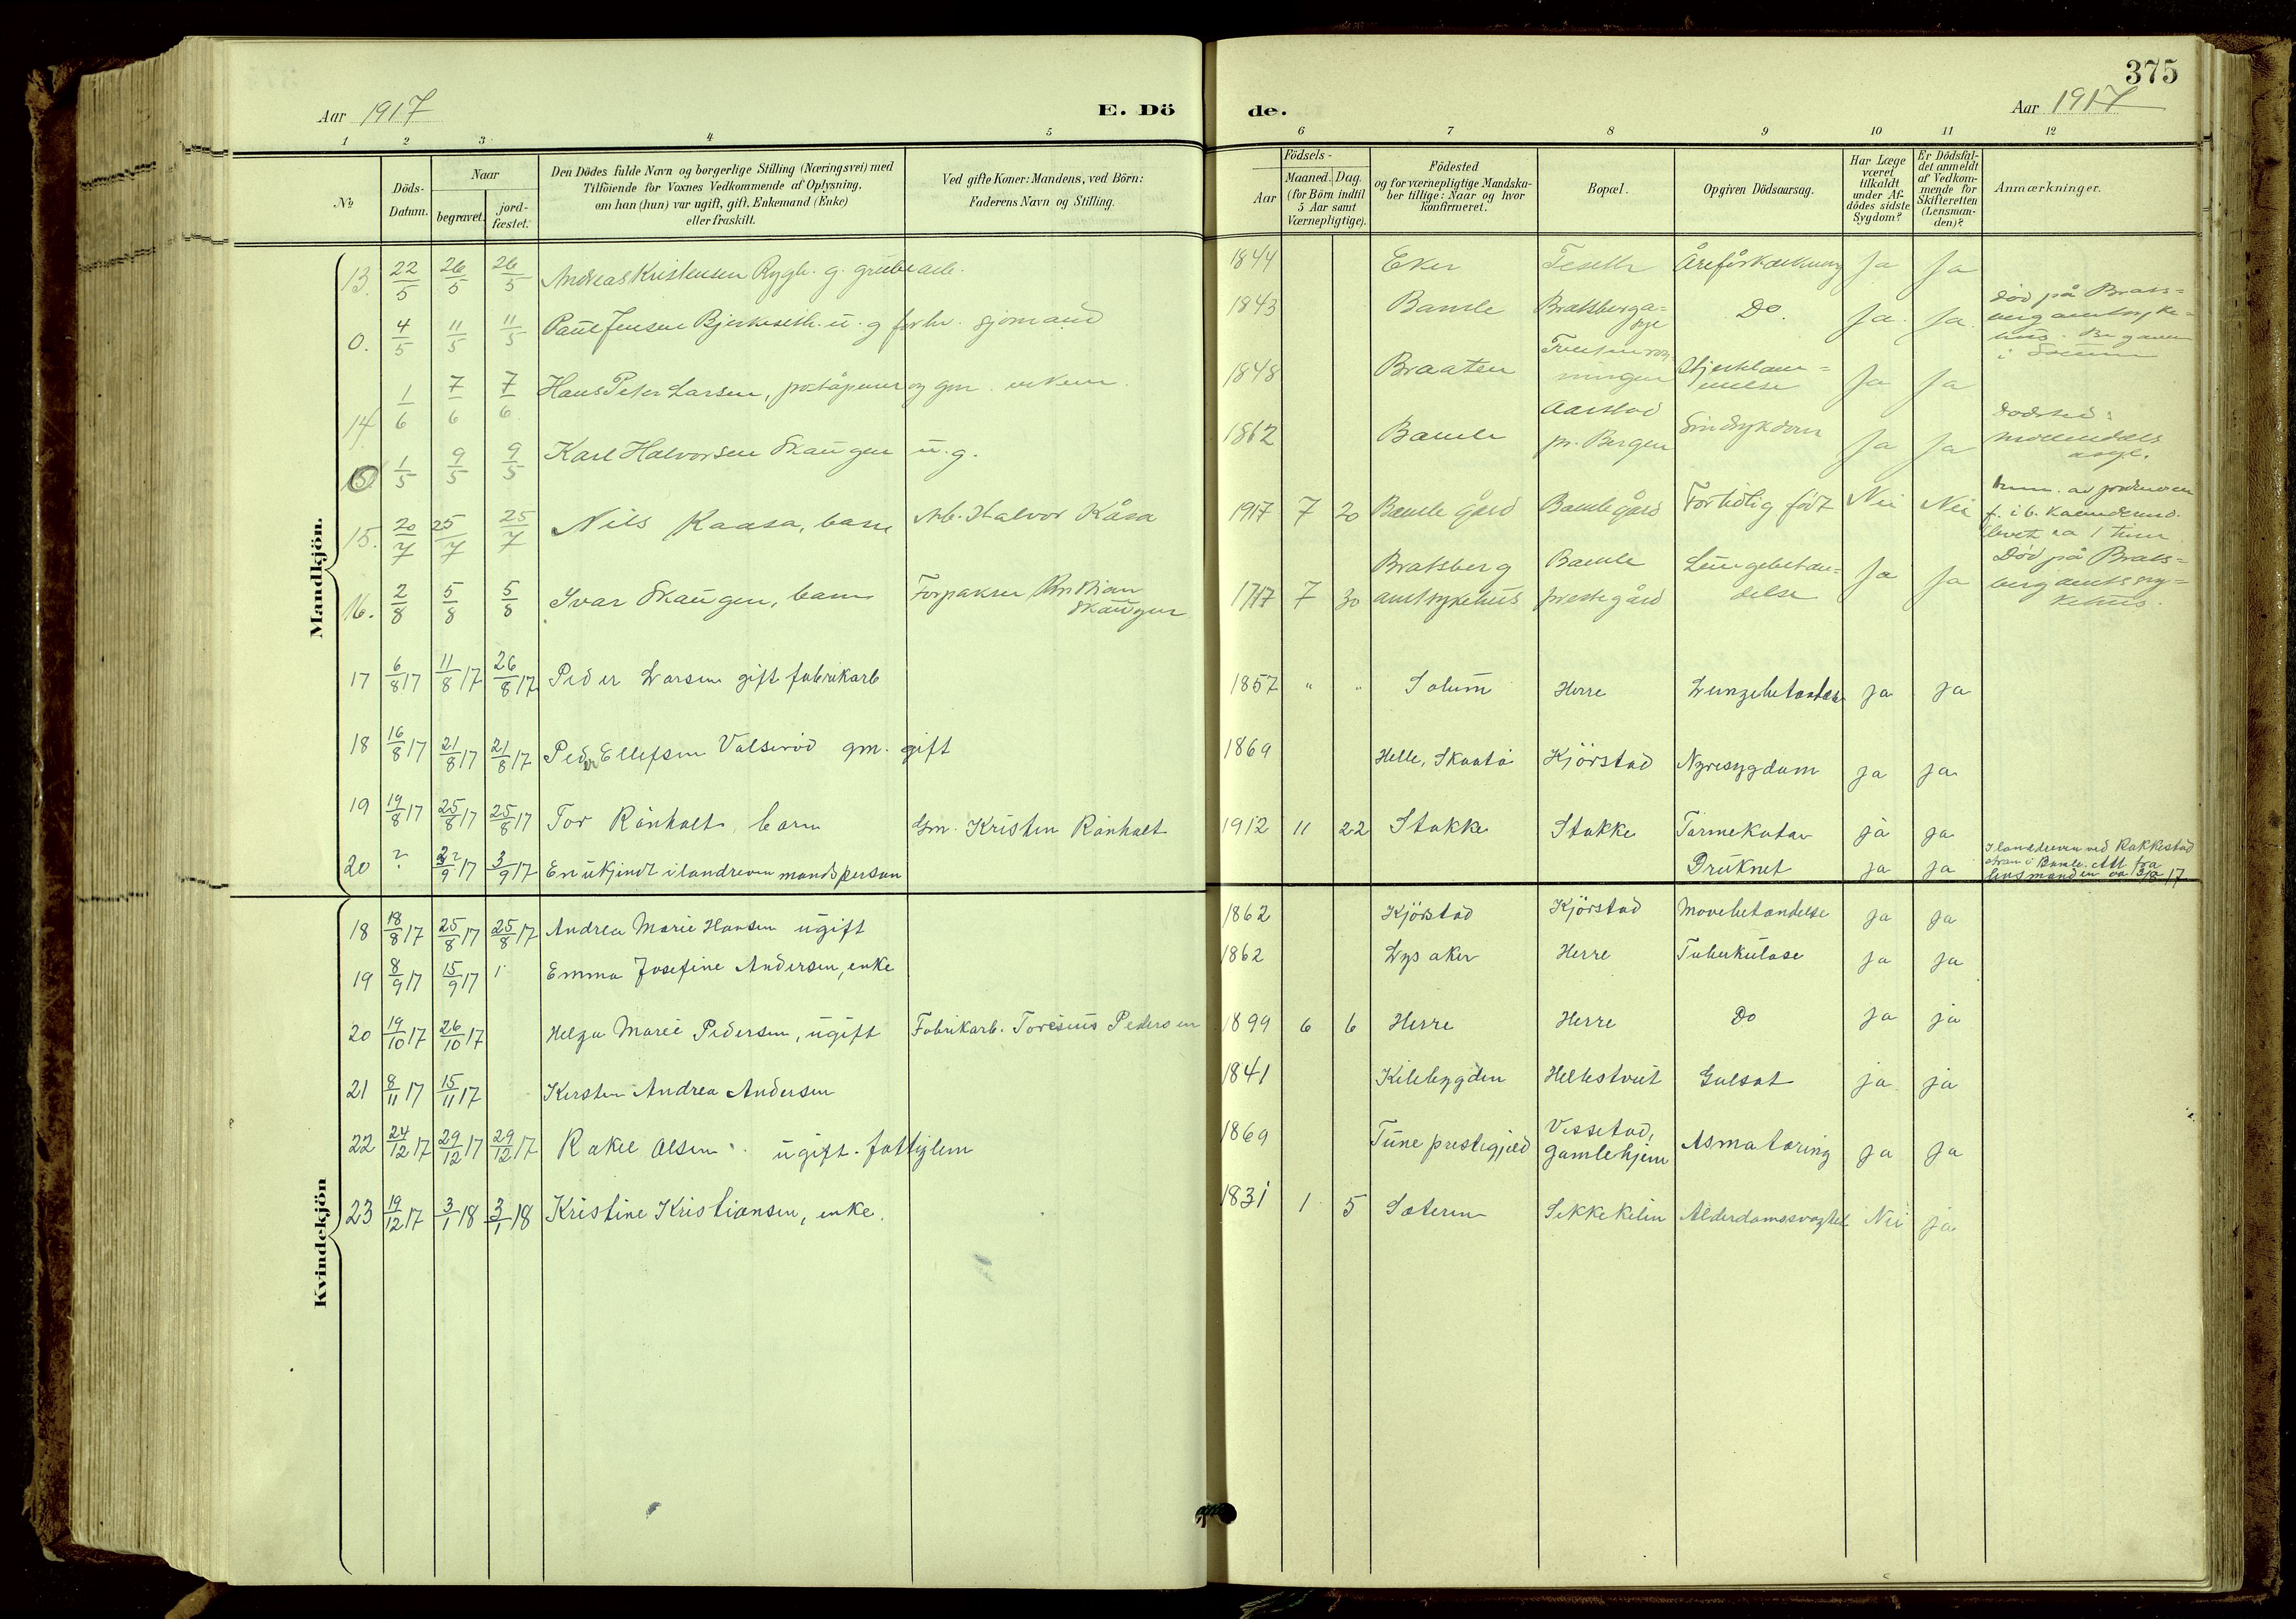 375
Aar 1917
E. Dö
de.
Aar 1917
1 2 3 4 5 6 7 8 9 10 11 12
No
Döds-Datum.
Naar
begravet.
jord-fæstet.
Den Dödes fulde Navn og borgerlige Stilling (Næringsvei) med
Tilföiende for Voxnes Vedkommende af Oplysning,
om han (hun) var ugift, gift, Enkemand (Enke)
eller fraskilt.
Ved gifte Koner: Mandens, ved Börn:
Faderens Navn og Stilling.
Födsels-
Aar
Maaned. Dag.
(for Börn indtil
5 Aar samt
Værnepligtige).
Födested
og for værnepligtige Mandska-
ber tillige: Naar og hvor
konfirmeret.
Bopæl.
Opgiven Dödsaarsag.
Har Læge
været
tilkaldt
under Af-
dödes sidste
Sygdom?
Er Dödsfal-
det anmeldt
af Vedkom-
mende for
Skifteretten
(Lensman-
den)?
Anmærkninger.
Mandkjön.
13. 22/5 26/5 26/5 Andreas Kristensen Rygh. g. grubearb. 1844 Eker Feseth Åreforkalkning Ja Ja
0. 4/5 11/5 11/5 Paul Jensen Bjerkeseth. u. g forhv. sjømand 1843 Bamle Bratsberga= Do. Ja. Ja. Død på Brats=
i
14 1/6 7/6 7/6 Hans Peter Larsen, poståpner og gm. 1848 Braaten Ja Ja
0 1/5 9/5 9/5 Karl Halvorsen Skaugen u. g. 1862 Bamle Aarstad
pr. Bergen Sindsykdom Ja Ja
15. 20/7 25/7 25/7 Nils Kaasa, barn Arb. Halvor Kåsa 1917 7 20 Bamle gård Bamle gård Fortidlig født Nei Nei
levet ca 1 time
16. 2/8 5/8 5/8 Ivar Skaugen, barn Forpakter Kristian
Skaugen 1917 7 30 Bratsberg
amtsykehus Bamle
prestegård Lungebetæn=
delse Ja Ja Død på Brats=
berg amtssy=
kehus.
17 6/8 17 11/8 17 26/8 17 Peder Larsen gift fabrikarb 1857 " " Solum Herre Lungebetændelse ja ja
18 16/8 17 21/8 17 21/8 17 Peder Ellefsen Valserød gm. gift 1869 Helle, Skaatø Kjörstad Nyresygdom ja ja
19 19/8 17 25/8 17 25/8 17 Tor Rönholt, barn Gm. Kristen Rönholt 1912 11 22 Stokke Stokke Tarmekatar ja ja
20 ? 3/9 17 3/9 17 En ukjendt ilanddreven mandsperson Druknet ja ja Ilanddreven ved Rakkestad
i Bamle. Att. fra
lensmanden
Kvindekjön
18 18/8 17 25/8 17 25/8 17 Andrea Marie Hansen ugift 1862 Kjörstad Kjörstad Mavebetændelse ja ja
19 8/9 17 15/9 17 Emma Josefine Andersen, enke 1862 Lysaker Herre Tuberkulose ja ja
20 19/10 17 26/10 17 Helga Marie Pedersen, ugift Fabrikarb. Toresius Pedersen 1899 6 6 Herre Herre Do ja ja
21 8/11 17 15/11 17 Kirsten Andrea Andersen 1841 Kilebygden Hellestveit Gulsot ja ja
22 24/12 17 29/12 17 29/12 17 Rakel Olsen ugift. fattiglem 1869 Tune prestegjæld Vissestad,
gamlehjem Asmatæring ja ja
23 19/12 17 3/1 18 3/1 18 Kristine Kristiansen, enke. 1831 1 5 Sæteren Sekkekilen Alderdomssvaghed Nei ja